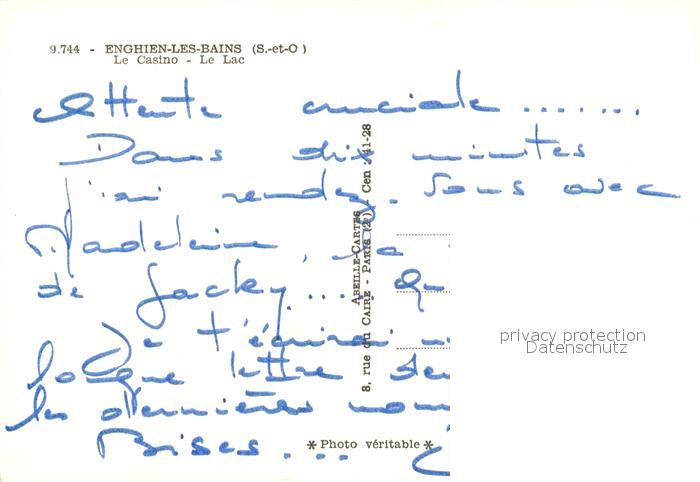 9.744 - ENGHIEN-LES-BAINS (S.-et-O)
Le Casino - Le Lac
Attente cruciale ........
Dans dix minutes
j'ai rendez-vous avec
Madeleine, la
de Jacky.... qu
Je t'écrirai
longue lettre
les dernières
Bises...
ABEILLE-CARTES
8, rue du CAIRE - PARIS (2e) - Cen : 41-28
* Photo véritable *
privacy protection
Datenschutz